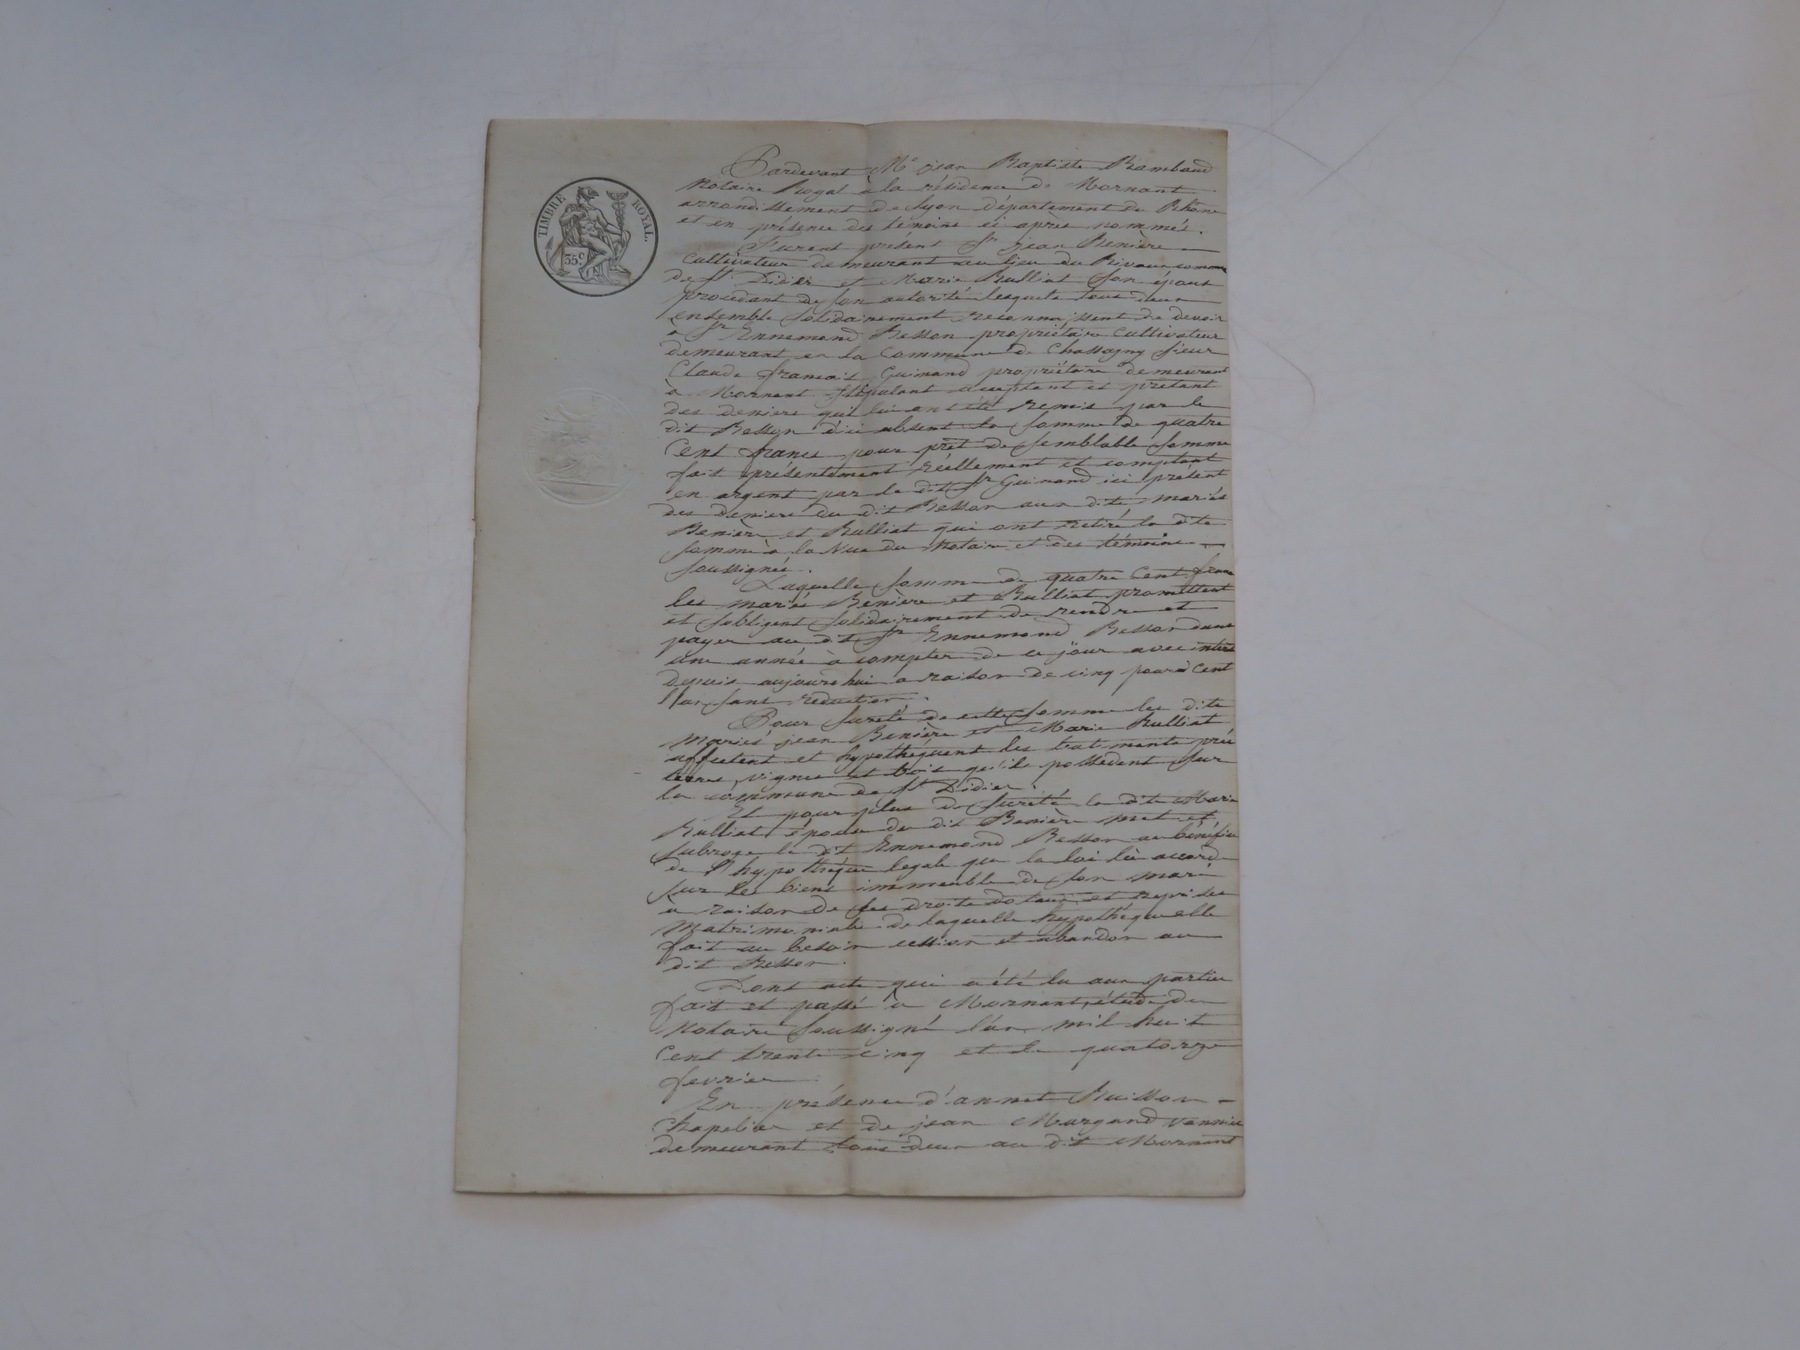 TIMBRE ROYAL.
35c
Pardevant Me jean Baptiste Rambaud
Notaire Royal à la résidence de Mornant
arrondissement de Lyon département du Rhône
et en présence des témoins ci après nommés.
Furent présent Sr jean Benière
cultivateur demeurant au lieu du commune
de St Didier et Marie Rulliat son épouse
procédant de son autorité lesquels tous deux
ensemble solidairement reconnoissent de devoir
a Sr Ennemond Besson propriétaire cultivateur
demeurant en la Commune de Chassagny sieur
Claude françois Guinand propriétaire demeurant
à Mornant stipulant acceptant et prétant
des deniers qui lui ont été remis par le
dit Besson d'ici absent la somme de quatre
Cent francs pour prêt de semblable somme
fait présentement réellement et comptant
en argent par le dit Sr Guinand ici présent
des deniers du dit Besson aux dits mariés
Benière et Rulliat qui ont retiré la dite
somme à la Vue du Notaire et des témoins
soussignés.
Laquelle somme de quatre Cent francs
les mariés Benière et Rulliat promettent
et s'obligent solidairement de rendre et
payer au dit Sr Ennemond Besson dans
une année à compter de ce jour avec intérêt
depuis aujourd'hui a raison de cinq pour Cent
l'an sans réduction.
Pour sureté de cette somme les dits
mariés jean Benière et Marie Rulliat
affectent et hypothèquent les batiments prés
terres, vignes et bois qu'ils possèdent sur
la commune de St Didier.
Et pour plus de sureté la dite Marie
Rulliat épouse du dit Benière met et
subroge le dit Ennemond Besson au bénéfice
de l'hypothéque legale que la loi lui accorde
sur les biens immeuble de son mari
à raison de ses droits dotaux et reprises
matrimoniale de laquelle hypothéque elle
fait au besoin cession et abandon au
dit Besson.
Dont acte qui a été lu aux parties
fait et passé à Mornant, étude du
Notaire soussigné l'an mil huit
Cent trente cinq et le quatorze
fevrier
En présence d'annet Buisson
Chapelier et de jean Murgand Vannier
demeurant tous deux au dit Mornant